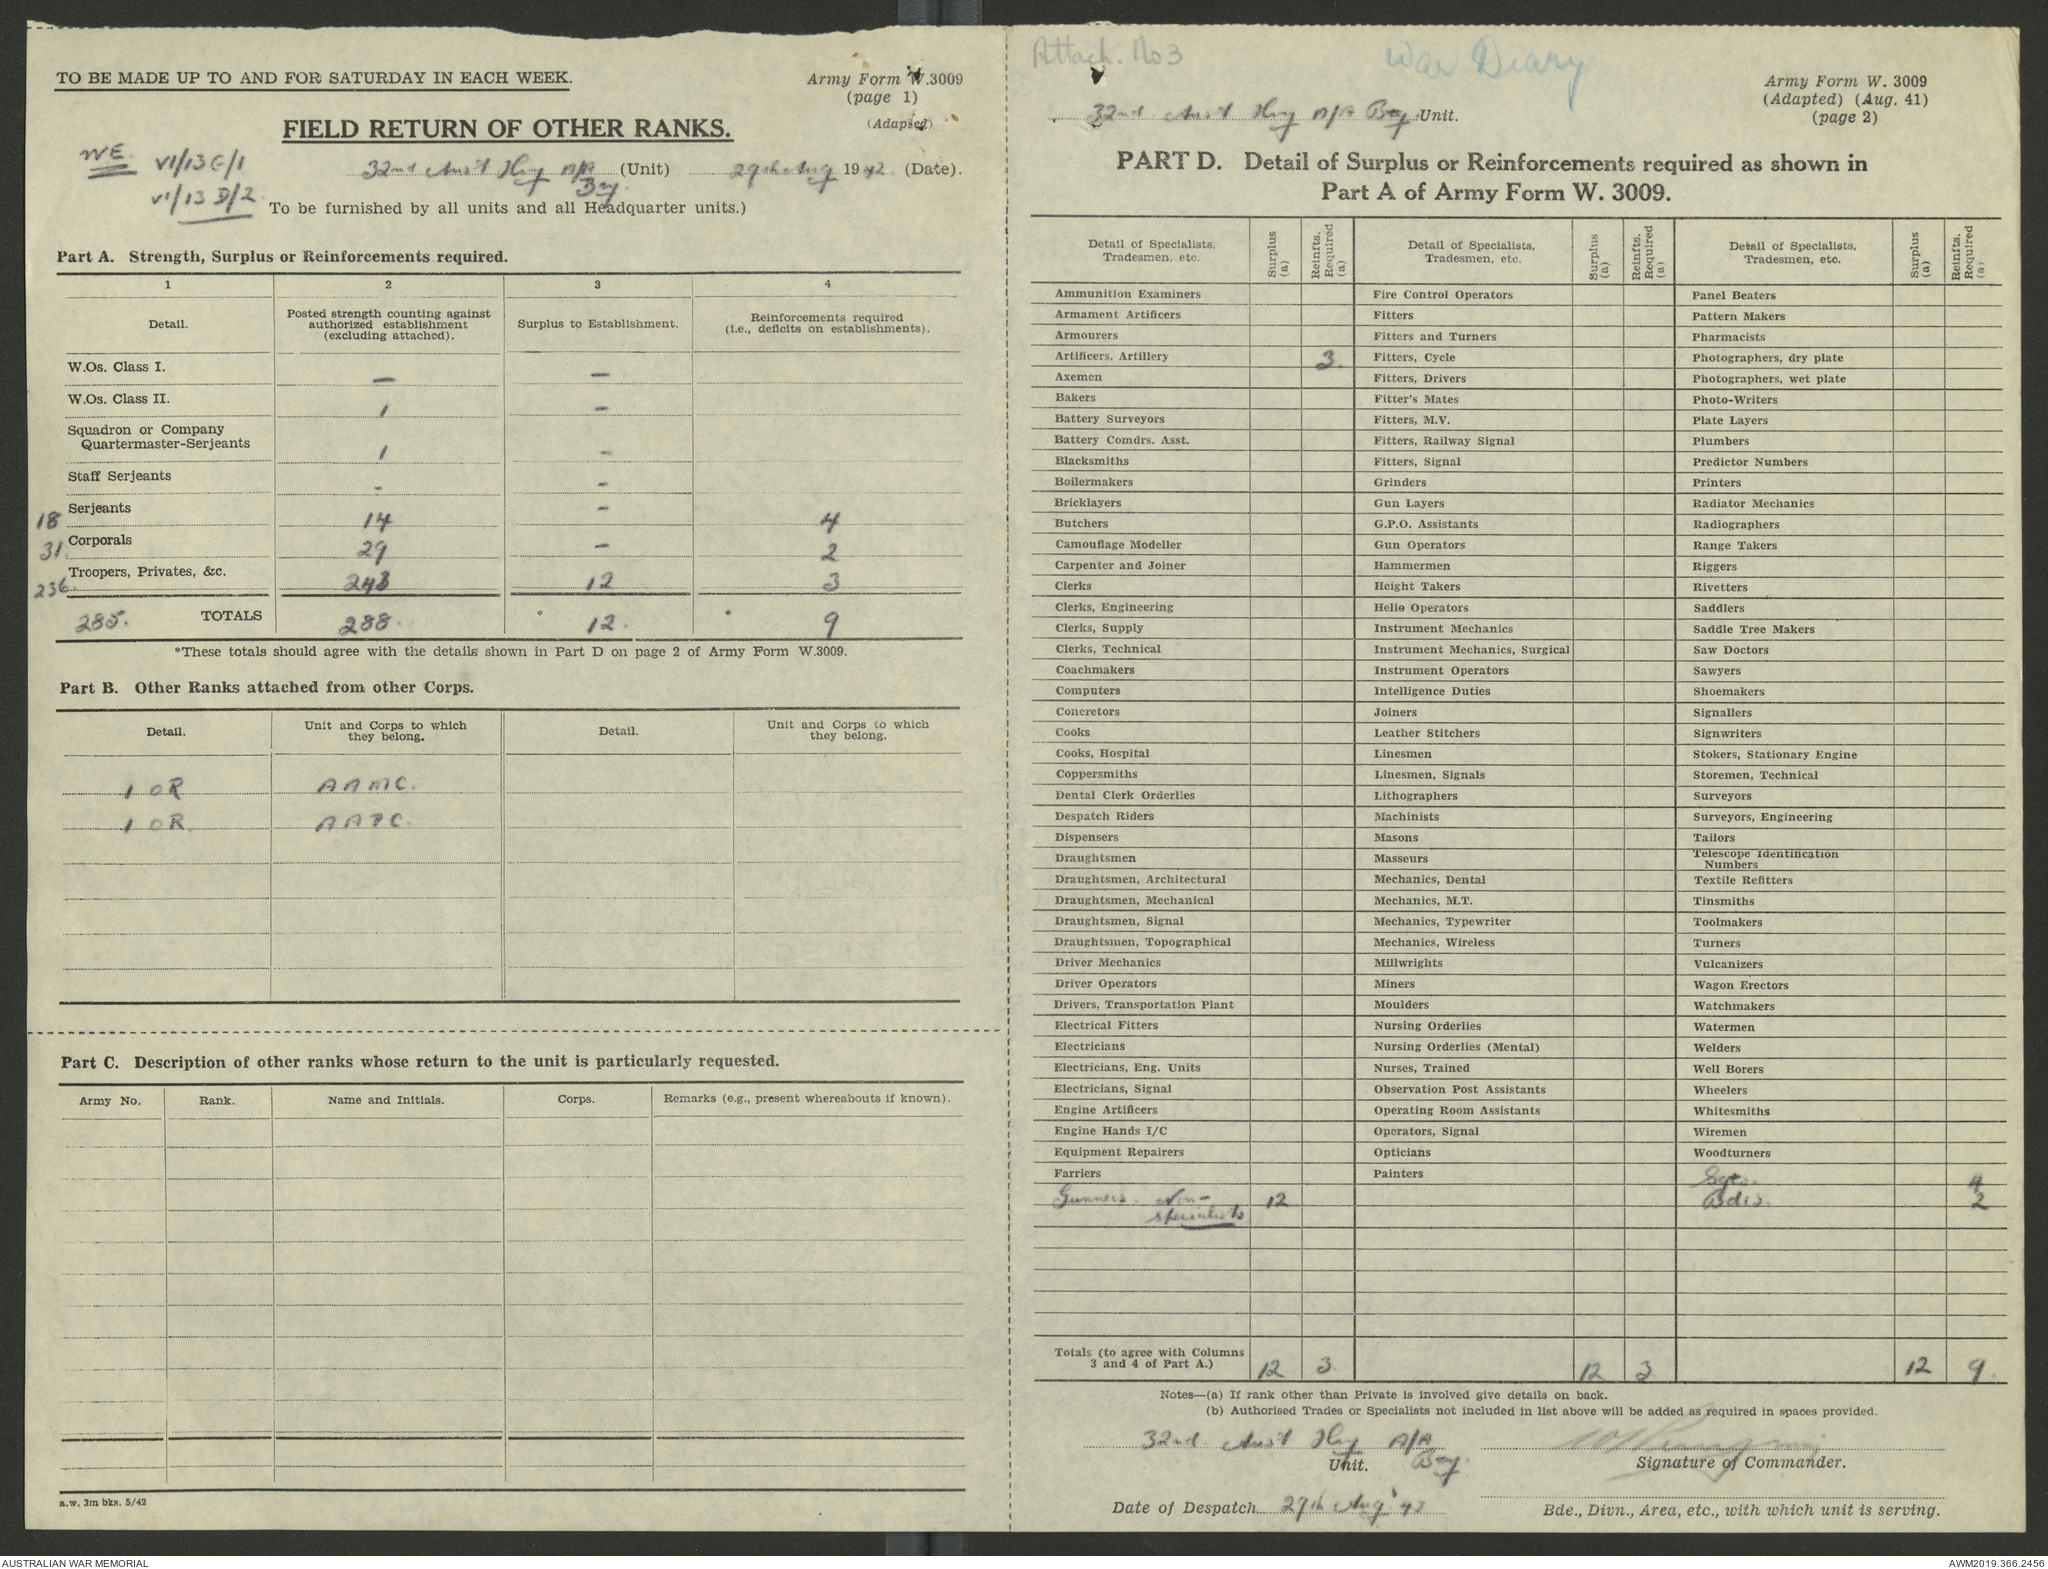 TO BE MADE UP TO AND FOR SATURDAY IN EACH WEEK.
Army Form W.3009
(page 1)
(Adapted)
FIELD RETURN OF OTHER RANKS.
WE. VI/13 G/1
VI/13 D/2
32nd Aust Hvy A/A Bty. (Unit) 29th Aug 1942. (Date).
To be furnished by all units and all Headquarter units.)
Part A. Strength, Surplus or Reinforcements required.
1 2 3 4
Detail. Posted strength counting against authorized establishment (excluding attached). Surplus to Establishment. Reinforcements required (i.e., deficits on establishments).
W.Os. Class I. — —
W.Os. Class II. 1 —
Squadron or Company
Quartermaster-Serjeants 1 -
Staff Serjeants - -
18 Serjeants 14 - 4
31 Corporals 29 — 2
236. Troopers, Privates, &c. 243 12 3
285. TOTALS 288. * 12. * 9
*These totals should agree with the details shown in Part D on page 2 of Army Form W.3009.
Part B. Other Ranks attached from other Corps.
Detail. Unit and Corps to which they belong. Detail. Unit and Corps to which they belong.
1 OR AAMC.
1 OR. AAPC.
Part C. Description of other ranks whose return to the unit is particularly requested.
Army No. Rank. Name and Initials. Corps. Remarks (e.g., present whereabouts if known).
a.w. 3m bks. 5/42
Attach. No 3
War Diary
Army Form W. 3009
(Adapted) (Aug. 41)
(page 2)
32nd Aust Hvy A/A Bty Unit.
PART D. Detail of Surplus or Reinforcements required as shown in
Part A of Army Form W. 3009.
Detail of Specialists, Tradesmen, etc. Surplus (a) Reinfts. Required (a) Detail of Specialists, Tradesmen, etc. Surplus (a) Reinfts. Required (a) Detail of Specialists, Tradesmen, etc. Surplus (a) Reinfts. Required (a)
Ammunition Examiners Fire Control Operators Panel Beaters
Armament Artificers Fitters Pattern Makers
Armourers Fitters and Turners Pharmacists
Artificers, Artillery 3. Fitters, Cycle Photographers, dry plate
Axemen Fitters, Drivers Photographers, wet plate
Bakers Fitter's Mates Photo-Writers
Battery Surveyors Fitters, M.V. Plate Layers
Battery Comdrs. Asst. Fitters, Railway Signal Plumbers
Blacksmiths Fitters, Signal Predictor Numbers
Boilermakers Grinders Printers
Bricklayers Gun Layers Radiator Mechanics
Butchers G.P.O. Assistants Radiographers
Camouflage Modeller Gun Operators Range Takers
Carpenter and Joiner Hammermen Riggers
Clerks Height Takers Rivetters
Clerks, Engineering Helio Operators Saddlers
Clerks, Supply Instrument Mechanics Saddle Tree Makers
Clerks, Technical Instrument Mechanics, Surgical Saw Doctors
Coachmakers Instrument Operators Sawyers
Computers Intelligence Duties Shoemakers
Concretors Joiners Signallers
Cooks Leather Stitchers Signwriters
Cooks, Hospital Linesmen Stokers, Stationary Engine
Coppersmiths Linesmen, Signals Storemen, Technical
Dental Clerk Orderlies Lithographers Surveyors
Despatch Riders Machinists Surveyors, Engineering
Dispensers Masons Tailors
Draughtsmen Masseurs Telescope Identification Numbers
Draughtsmen, Architectural Mechanics, Dental Textile Refitters
Draughtsmen, Mechanical Mechanics, M.T. Tinsmiths
Draughtsmen, Signal Mechanics, Typewriter Toolmakers
Draughtsmen, Topographical Mechanics, Wireless Turners
Driver Mechanics Millwrights Vulcanizers
Driver Operators Miners Wagon Erectors
Drivers, Transportation Plant Moulders Watchmakers
Electrical Fitters Nursing Orderlies Watermen
Electricians Nursing Orderlies (Mental) Welders
Electricians, Eng. Units Nurses, Trained Well Borers
Electricians, Signal Observation Post Assistants Wheelers
Engine Artificers Operating Room Assistants Whitesmiths
Engine Hands I/C Operators, Signal Wiremen
Equipment Repairers Opticians Woodturners
Farriers Painters Sgts. 4
Gunners. Non- 12 Bdrs. 2
specialists
Totals (to agree with Columns 3 and 4 of Part A.) 12 3 12 3 12 9.
Notes—(a) If rank other than Private is involved give details on back.
(b) Authorised Trades or Specialists not included in list above will be added as required in spaces provided.
32nd Aust Hvy A/A Bty.
Unit. Signature of Commander.
Date of Despatch 29th Aug '42
Bde., Divn., Area, etc., with which unit is serving.
AUSTRALIAN WAR MEMORIAL
AWM2019.366.2456